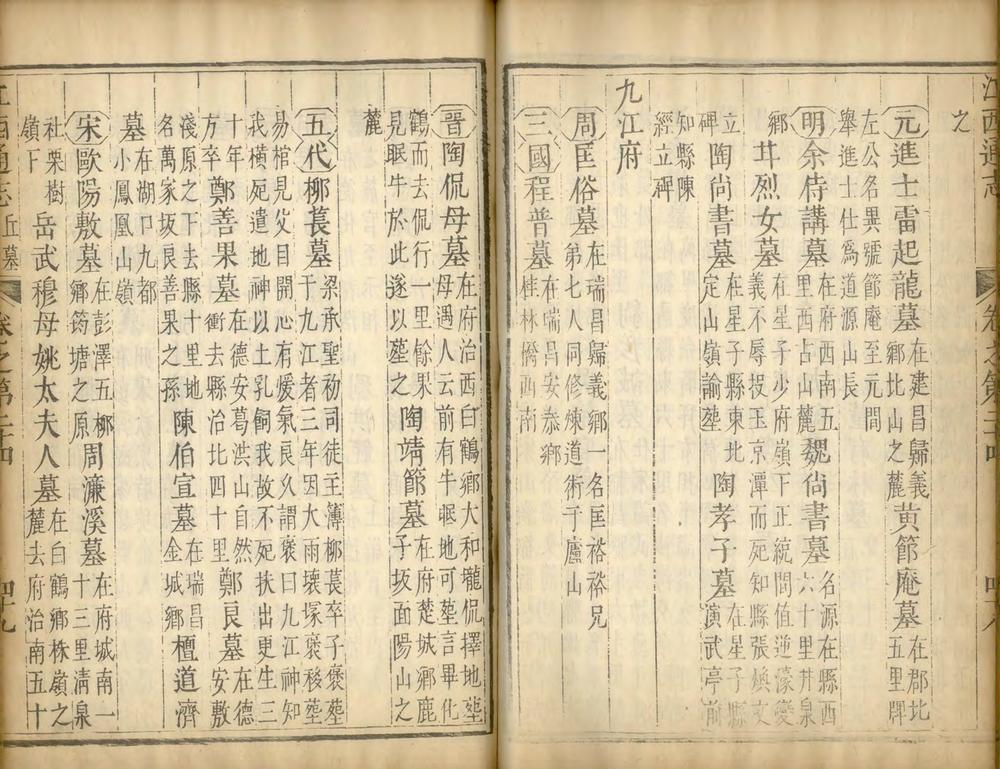 江西通志 卷之第二十四
之
元進士雷起龍墓在建昌歸義鄉北山之麓黃節庵墓在郡北五里牌
左公名異號節庵至元間舉進士仕爲道源山長
明余侍講墓在府西南五里西古山麓魏尚書墓名源在縣西六十里井泉
鄉井烈女墓在星子少府嶺下正統間值逆濠變義不辱投玉京潭而死知縣張煥文
立碑陶尚書墓在星子縣東北定山嶺諭塟陶孝子墓在星子縣演武亭前
知縣陳經立碑
九江府
周匡俗墓在瑞昌歸義鄉一名匡裕裕兄弟七人同修煉道術于廬山
三國程普墓在瑞昌安泰鄉桂林橋西南
晉陶侃母墓在府治西白鶴鄉大和壠侃擇地塟母遇人云前有牛眠地可墓言畢化
鶴而去侃行一里餘果見眠牛於此遂以塟之陶靖節墓在府楚城鄉鹿子坂面陽山之
麓
五代柳萇墓梁承聖初司徒主簿柳萇卒子褒塟于九江者三年因大雨壞塚褒移塟
易棺見父目開心有煖氣良久謂褒曰九江神知我橫死遣地神以土乳飼我故不死扶出更生三
十年方卒鄭善果墓在德安葛洪山自然衝去縣治北四十里鄭良墓在德安敷
淺原之下去縣十里地名萬家坂良善果之孫陳伯宣墓在瑞昌金城鄉檀道濟
墓在湖口九都小鳳凰山嶺
宋歐陽敷墓在彭澤五柳鄉筠塘之原周濂溪墓在府城南一十三里清泉
社栗樹嶺下岳武穆母姚太夫人墓在白鶴鄉株嶺之麓去府治南五十
江西通志 丘墓 卷之第二十四 四十九